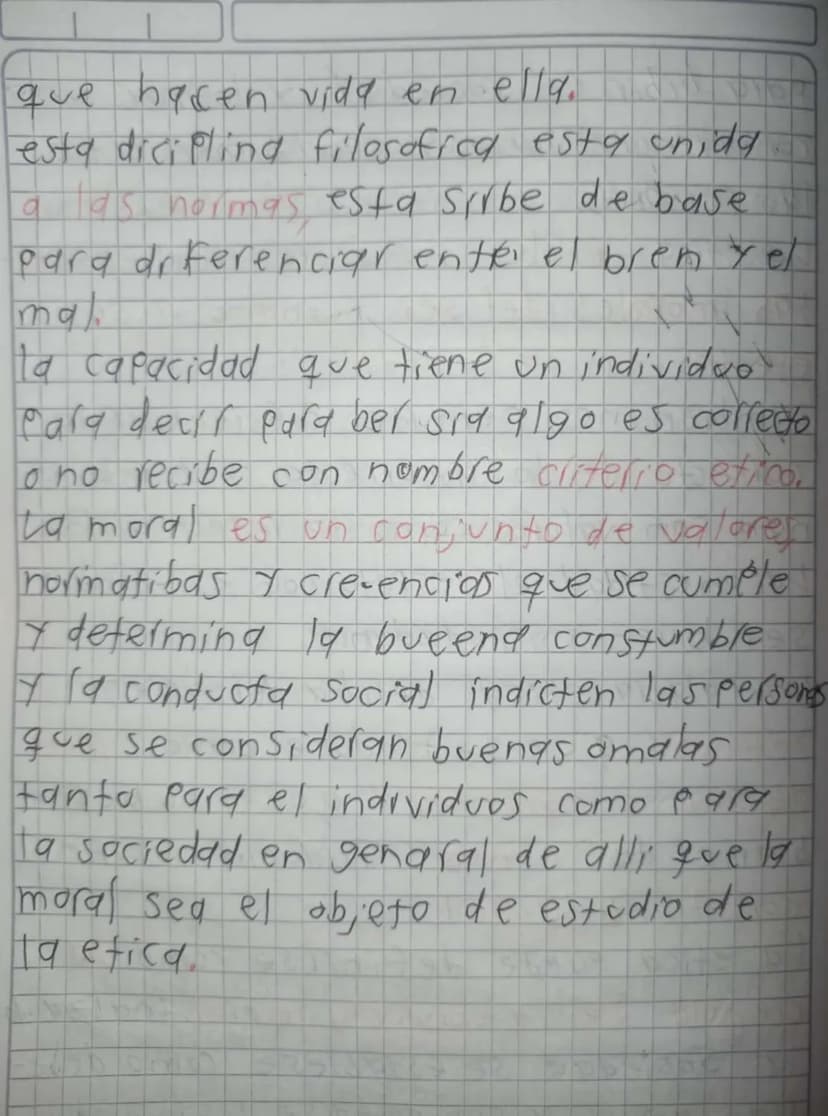 que hacen vida en ella.
esta diciplina filosofica esta unida
a las normas, esta sirbe de base
para diferenciar ente el bien y el
mal.
la capacidad que tiene un individuo
para decir para ber sia algo es correcto
o no recibe con nombre criterio etico.
La moral es un conjunto de valores
normatibas y cre-encias que se cumple
y determina la bueena constumble
y la conducta social indicten las persones
que se consideran buenas o malas
tanto para el individuos como para
la sociedad en genaral de alli que la
moral sea el objeto de estudio de
la etica.